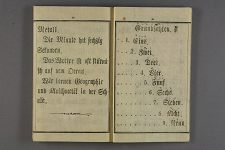 Metall.
Die Minute hat sechzig
Sekunden.
Das Wetter ist oft stürmi
sch auf dem Ocean.
Wir lernen Geographie
und Arithmetik in der Sch
ule.
Grundzahlen.
1. Eins.
2. Zwei.
3. Drei.
4. Vier.
5. Fünf
6. Sechs.
7. Sieben.
8. Acht
9. Neun.